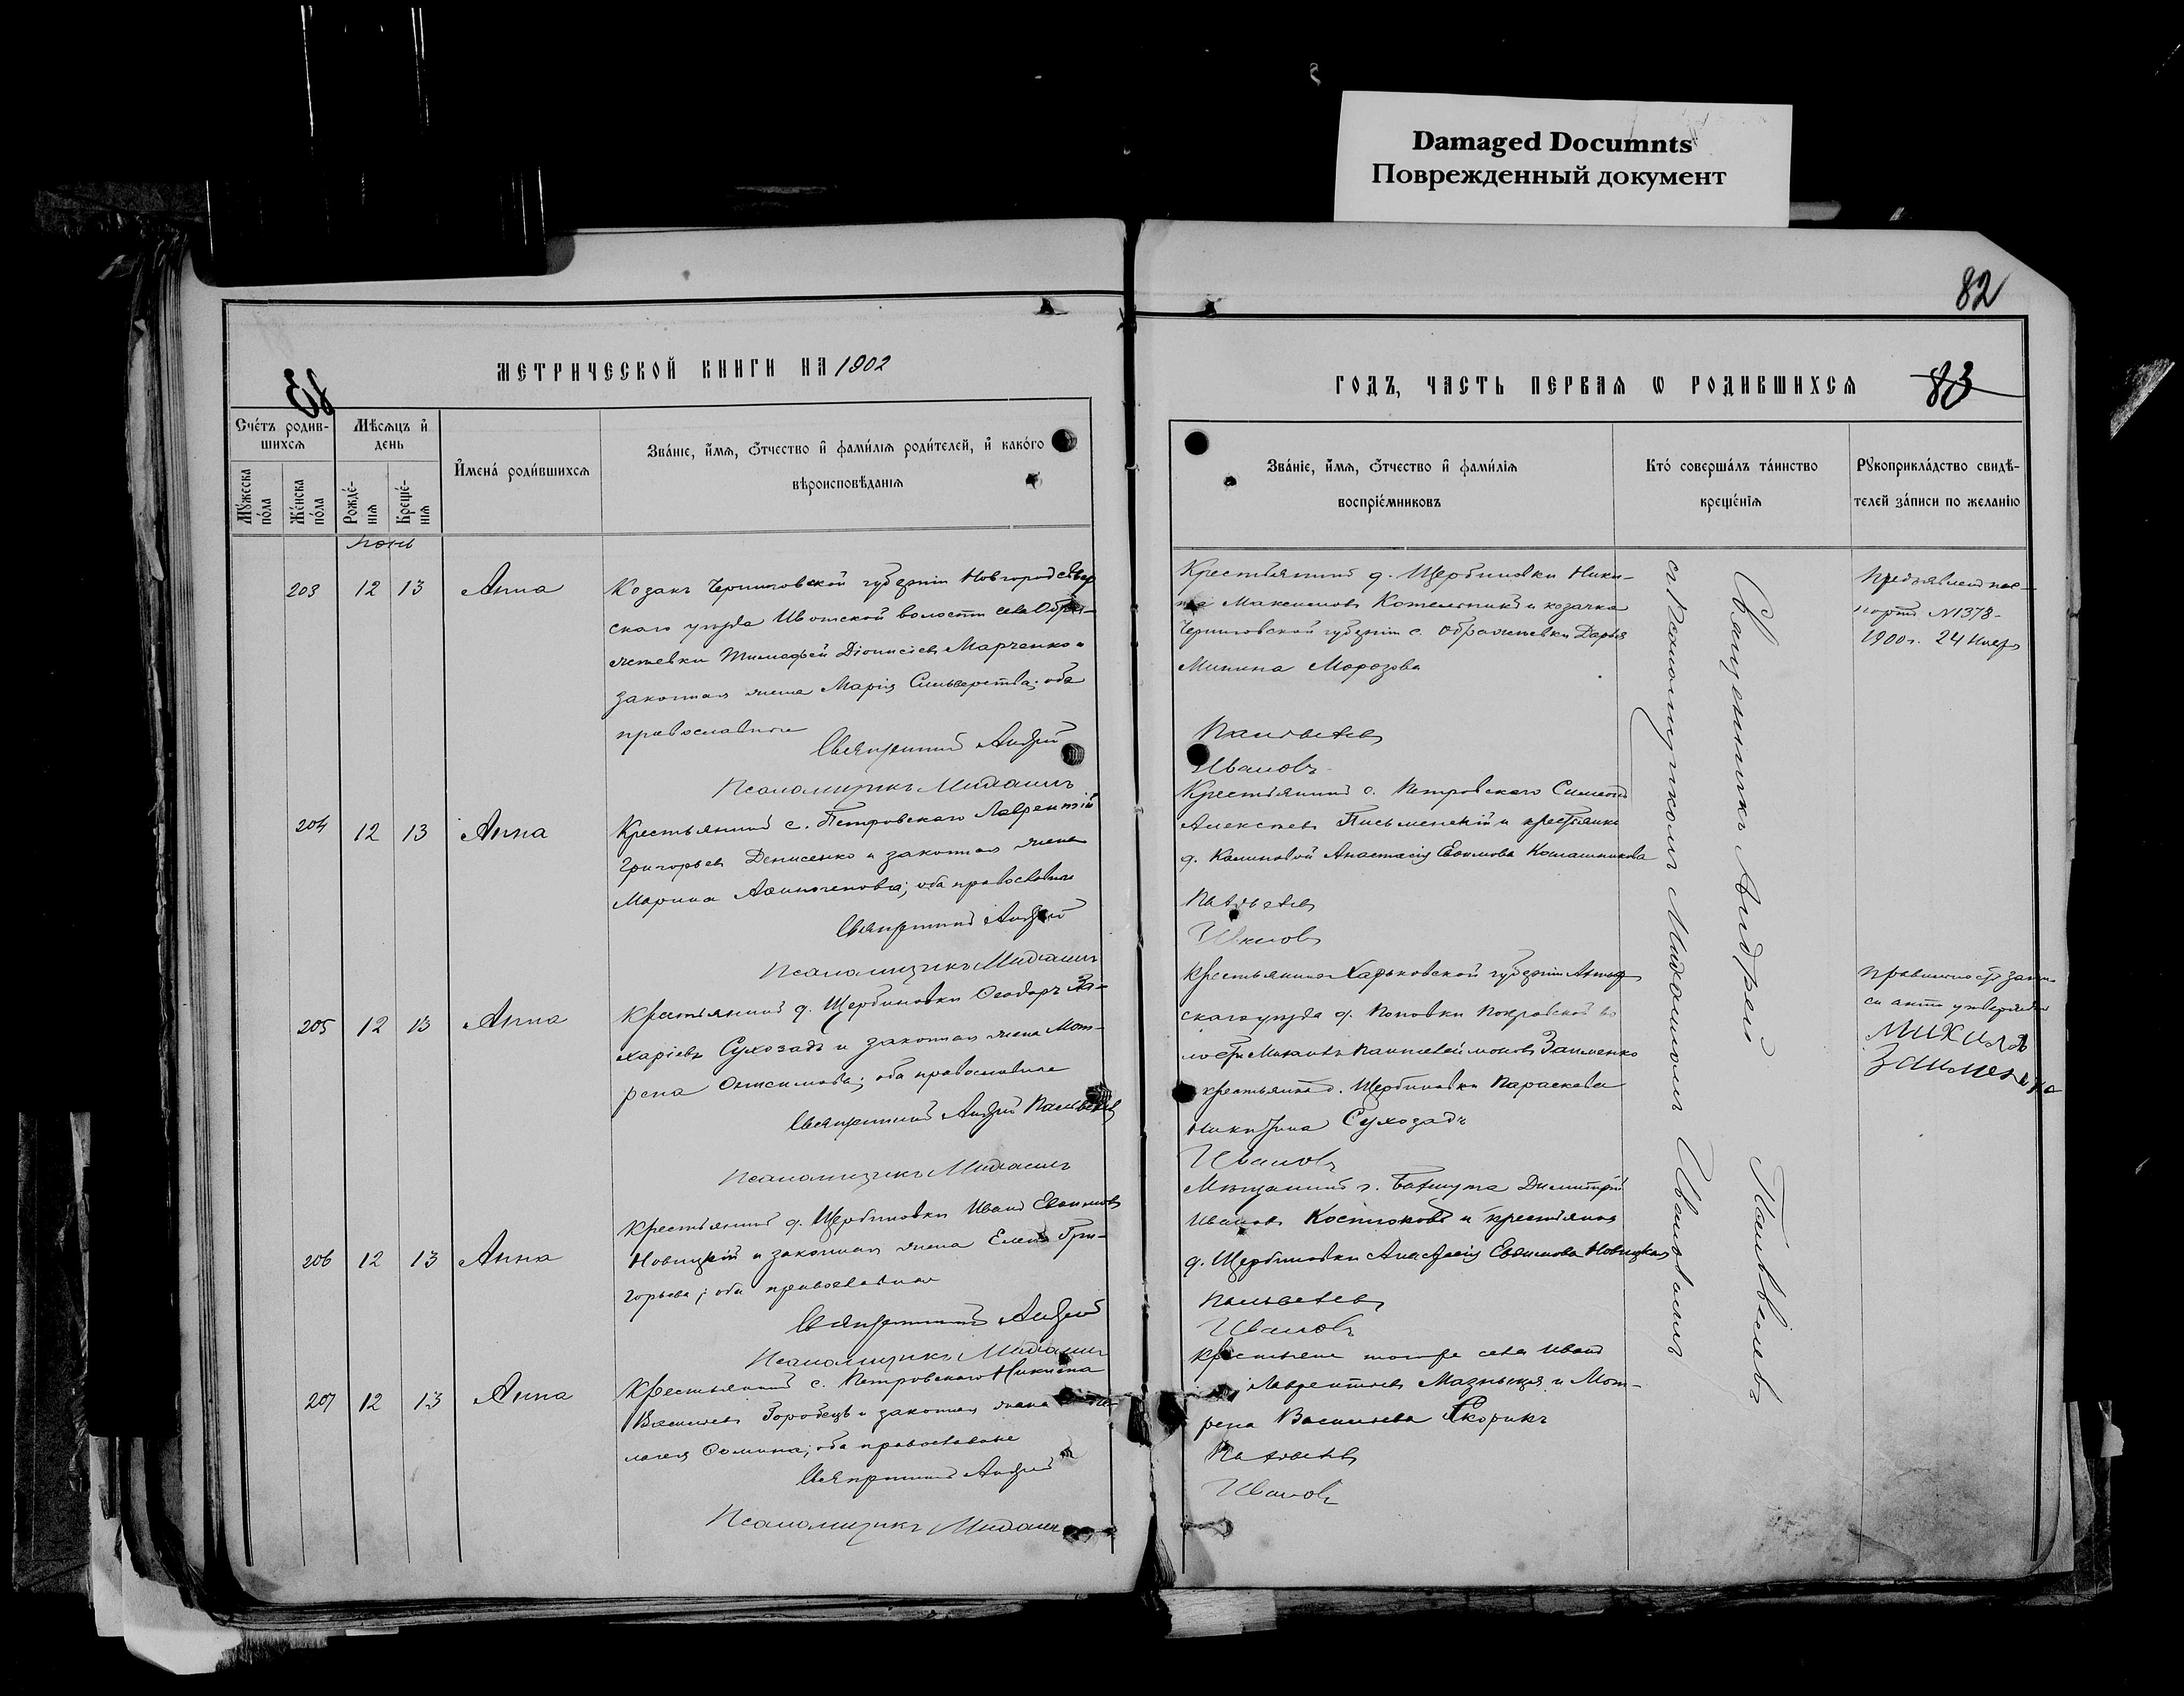 Damaged Documnts
Поврежденный документ
82
83
МЕТРИЧЕСКОЙ КНИГИ НА 1902
ГОДЪ, ЧАСТЬ ПЕРВАЯ Ѡ РОДИВШИХСЯ
83
Счетъ родив-
шихся
Мѣсяцъ и
день
Имена родившихся
Званіе, имя, отчество и фамилія родителей, и какого
вѣроисповѣданія
Мужеска
пола
Женска
пола
Рожде-
нія
Креще-
нія
Званіе, имя, отчество и фамилія
воспріемниковъ
Кто совершалъ таинство
крещенія
Рукоприкладство свидѣ-
телей записи по желанію
203 12 13 Анна
Козакъ Черниговской губерніи Новгородсѣвер
скаго уѣзда Ивотской волости села Обра-
жеевки Тимофей Діонисіевъ Марченко и
законная жена Марія Сильверстова; оба
православные
Священникъ Андрей
Псаломщикъ Михаилъ
Крестьянинъ д. Щербиновки Ники-
та Максимовъ Котельниковъ и козачка
Черниговской губерніи с. Дарья
Минина Морозова
Иванов
Предъявленъ пас-
портъ №1378
1900 г. 24 Ноября
204 12 13 Анна
Крестьянинъ с. Петровскаго Лаврентій
Григорьевъ Денисенко и законная жена
Марина оба православные
Священникъ Андрей
Псаломщикъ Михаилъ
Крестьянинъ с. Петровскаго Симеонъ
Алексѣевъ Письменскій и крестьянка
д. Калиновой Анастасія Евѳимова
Иванов
205 12 13 Анна
Крестьянинъ д. Щербиновки Ѳеодоръ За-
харіевъ Сухозадъ и законная жена Мот-
рена Онисимова; оба православные
Священникъ Андрей
Псаломщикъ Михаилъ
Крестьянинъ Харьковской губерніи
скаго уѣзда д. Поповки Покровской во
лости Михаилъ Пантелеймоновъ Заименко
и крестьянка д. Щербиновки Параскева
Никитина Сухозадъ
Иванов
Правильность запи-
си акта утверждаю
Михаилъ
Заименко
206 12 13 Анна
Крестьянинъ д. Щербиновки Иванъ Евѳимовъ
Новицкій и законная жена Елена Гри-
горьева; оба православные
Священникъ Андрей
Псаломщикъ Михаилъ
Мѣщанинъ г. Бахмута Димитрій
Ивановъ Костюковъ и крестьянка
д. Щербиновки Анастасія Евѳимова Новицкая
Иванов
207 12 13 Анна
Крестьянинъ с. Петровскаго Никита
Васильевъ Горобецъ и законная жена
лагея Ѳомина; оба православные
Священникъ Андрей
Псаломщикъ Михаилъ
Крестьяне того же села Иванъ
Лаврентьевъ и Мот-
рена Васильева Скорикъ
Иванов
Священникъ Андрей
съ Псаломщикомъ Михаиломъ Ивановымъ